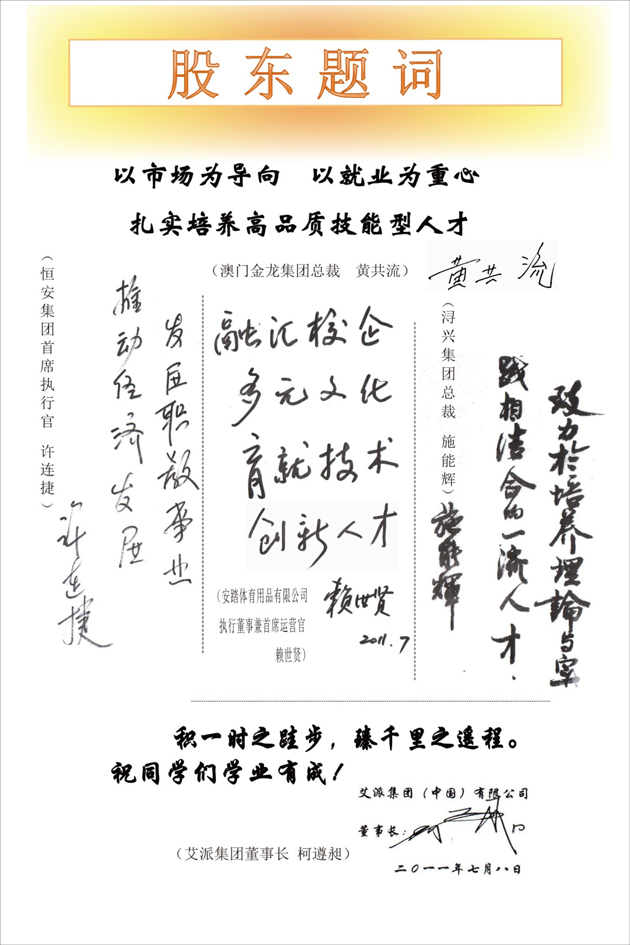 股东题词
以市场为导向 以就业为重心
扎实培养高品质技能型人才
（澳门金龙集团总裁 黄共流）
黄共流
致力於培养理論与实
践相结合的一流人才.
（浔兴集团总裁 施能辉）
施能輝
融汇校企
多元文化
育就技术
创新人才
（安踏体育用品有限公司
执行董事兼首席运营官
赖世贤）
赖世贤
2011.7
发展职教事业
推动经济发展
（恒安集团首席执行官 许连捷）
许连捷
积一时之跬步，臻千里之遥程。
祝同学们学业有成！
艾派集团（中国）有限公司
董事长：
二〇一一年七月八日
（艾派集团董事长 柯遵昶）